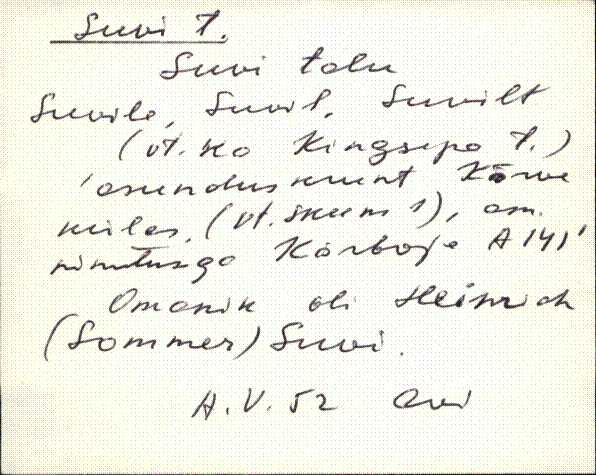 Suvi t.
Suvi talu
Suvile, Suvil, Suvilt
(vt. ka Kingsepa t.)
'asunduskrunt Kõrve
külas, (vt. skeem 1), am.
nimetusega Kõrboja A 141'
Omanik oli Heinrich
(Sommer) Suvi.
A.V. 52